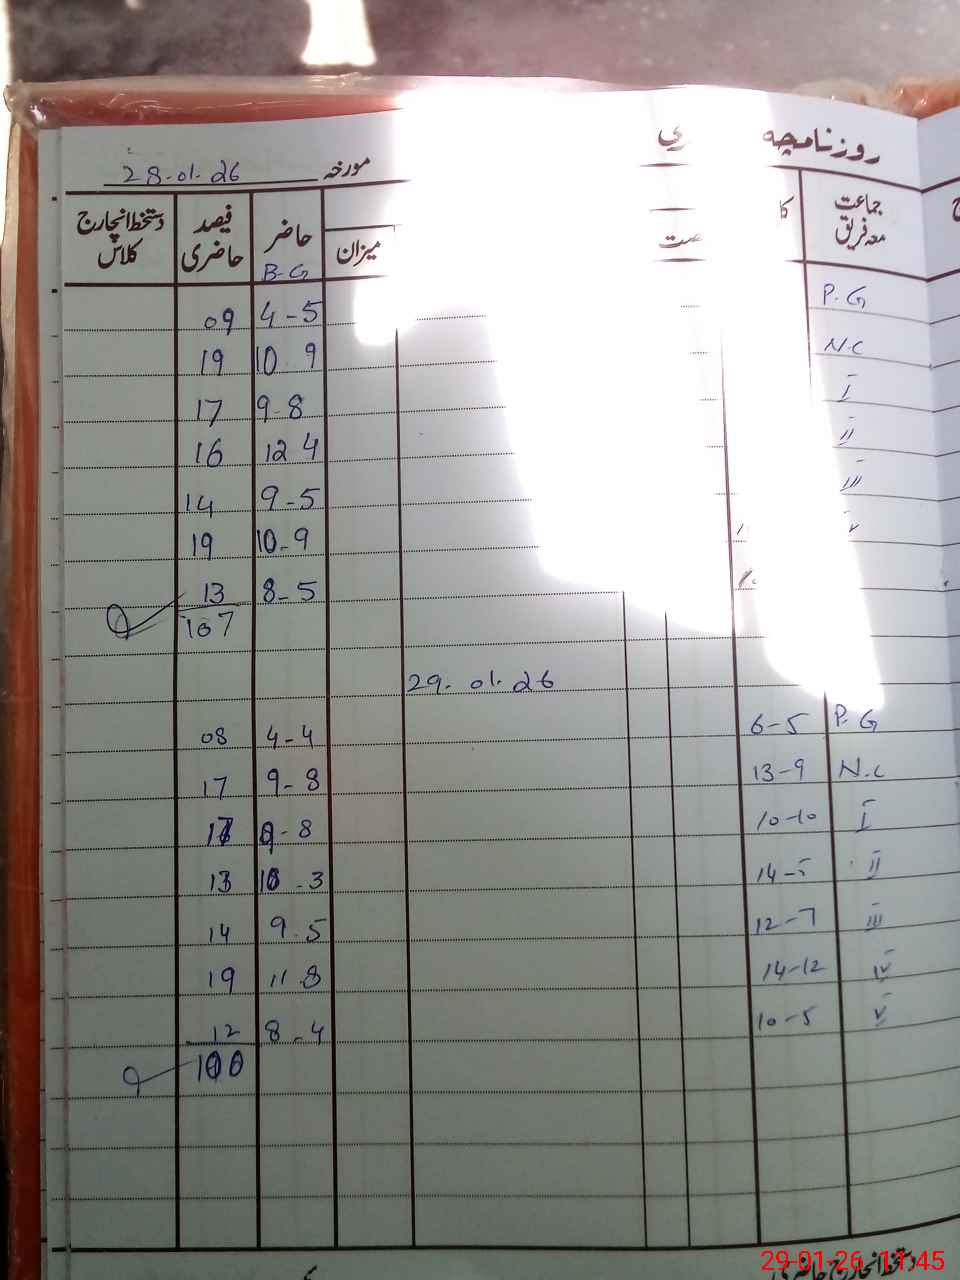 روزنامچہ
مورخہ 28.01.26
جماعت معہ فریق
میزان
حاضر
فیصد حاضری
دستخط انچارج کلاس
B-G
P.G 4-5 09
N.C 10 9 19
I 9-8 17
II 12 4 16
III 9-5 14
10-9 19
8-5 13
107
29.01.26
P.G 6-5 4-4 08
N.C 13-9 9-8 17
I 10-10 9-8 17
II 14-5 10-3 13
III 12-7 9.5 14
IV 14-12 11.8 19
V 10-5 8-4 12
100
دستخط انچارج حاضری
29-01-26 11:45